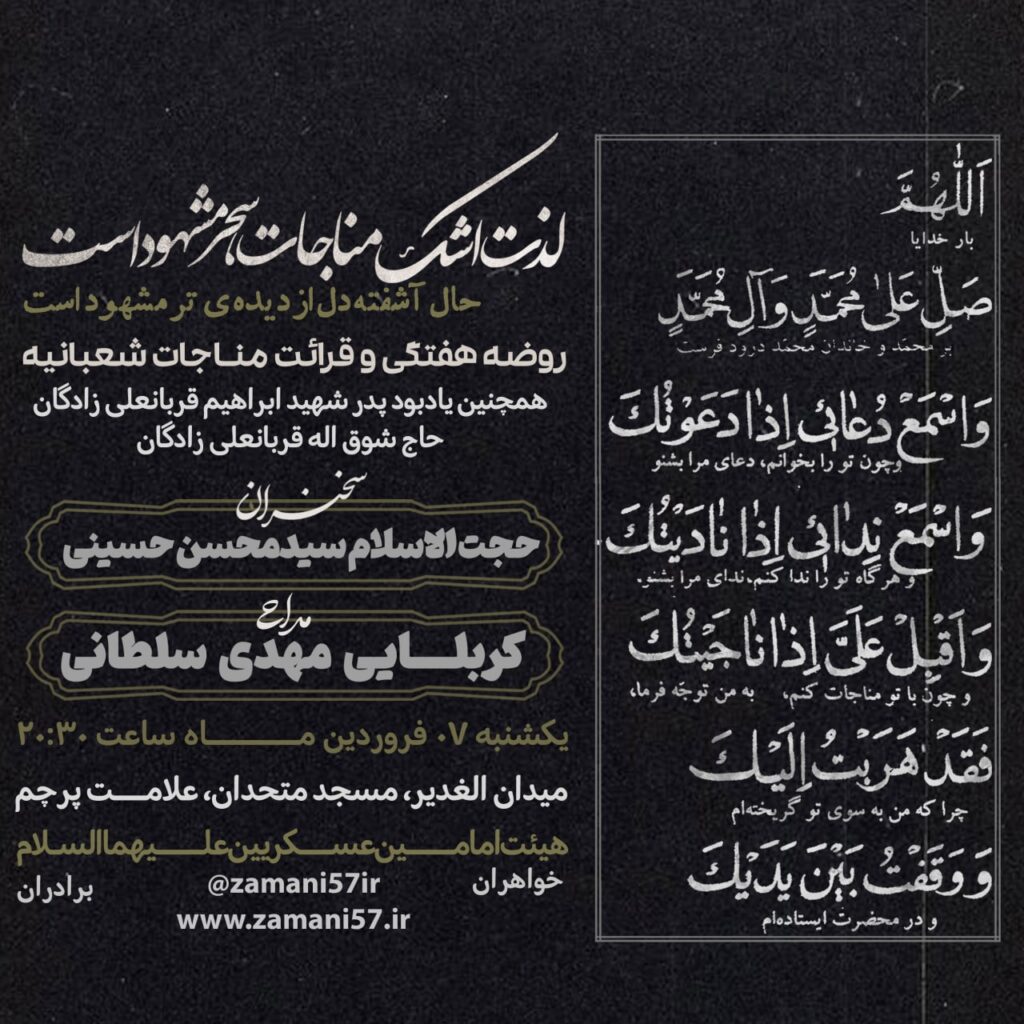 اَللّٰهُمَّ
بار خدایا
صَلِّ عَلىٰ مُحَمَّدٍ وَآلِ مُحَمَّدٍ
بر محمّد و خاندان محمّد درود فرست
وَاسْمَعْ دُعٰائی اِذٰا دَعَوْتُكَ
وچون تو را بخوانم، دعای مرا بشنو
وَاسْمَعْ نِدٰائی اِذٰا نٰادَیْتُكَ
و هرگاه تو را ندا کنم،ندای مرا بشنو.
وَاَقْبِلْ عَلَیَّ اِذٰا نٰاجَیْتُكَ
و چون با تو مناجات کنم، به من توجّه فرما،
فَقَدْ هَرَبْتُ اِلَیْكَ
چرا که من به سوی تو گریخته‌ام
وَ وَقَفْتُ بَیْنَ یَدَیْكَ
و در محضرت ایستاده‌ام
لذت اشک مناجات سحر مشهود است
حال آشفته دل از دیده‌ی تر مشهود است
روضه هفتگی و قرائت مناجات شعبانیه
همچنین یادبود پدر شهید ابراهیم قربانعلی زادگان
حاج شوق اله قربانعلی زادگان
سخنران
حجت‌الاسلام سیدمحسن حسینی
مداح
کربلایی مهدی سلطانی
یکشنبه ۰۷ فروردین ماه ساعت ۲۰:۳۰
میدان الغدیر، مسجد متحدان، علامت پرچم
هیئت امامین عسکریین علیهما السلام
خواهران @zamani57ir برادران
www.zamani57.ir